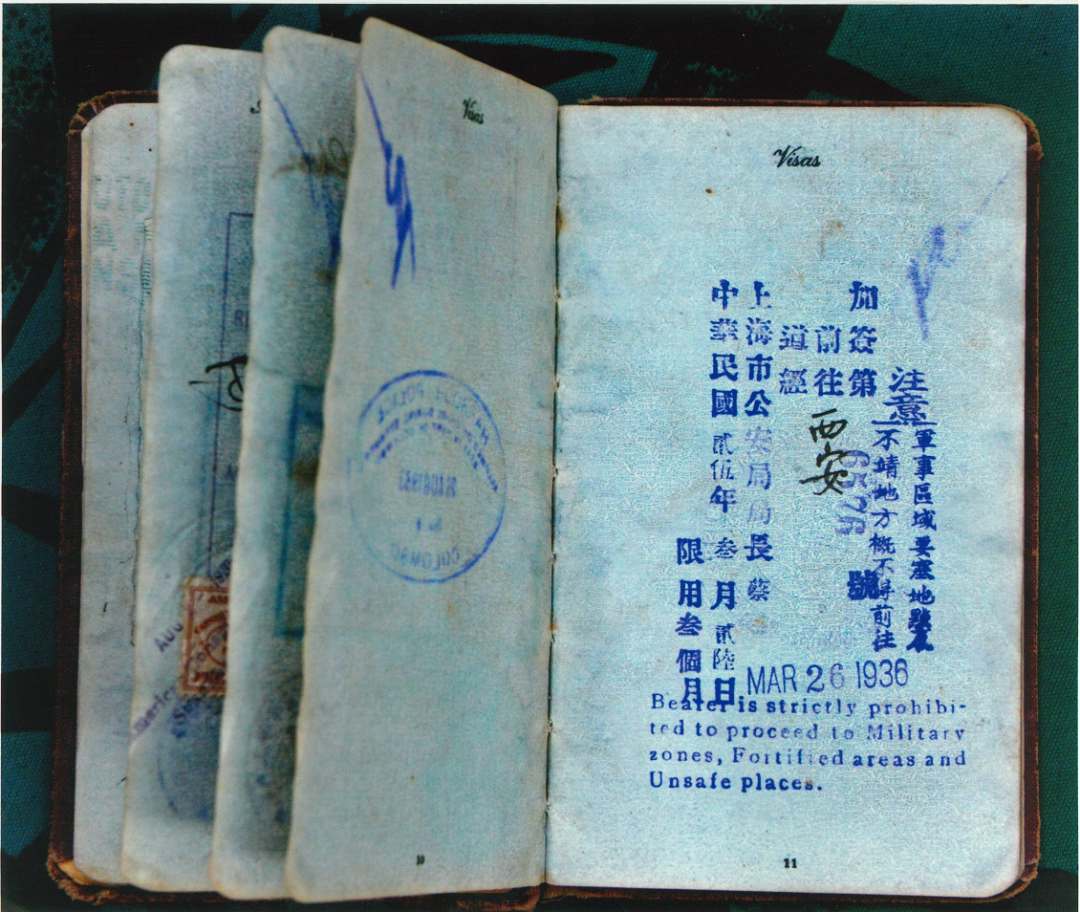 Visas
COLOMBO
10
Visas
注意
軍事區域要塞地點及
不靖地方概不得前往
加簽第 號
前往 西安
道經
上海市公安局局長蔡
中華民國貳伍年叁月貳陸日
限用叁個月
MAR 26 1936
Bearer is strictly prohibi-
ted to proceed to Military
zones, Fortified areas and
Unsafe places.
11